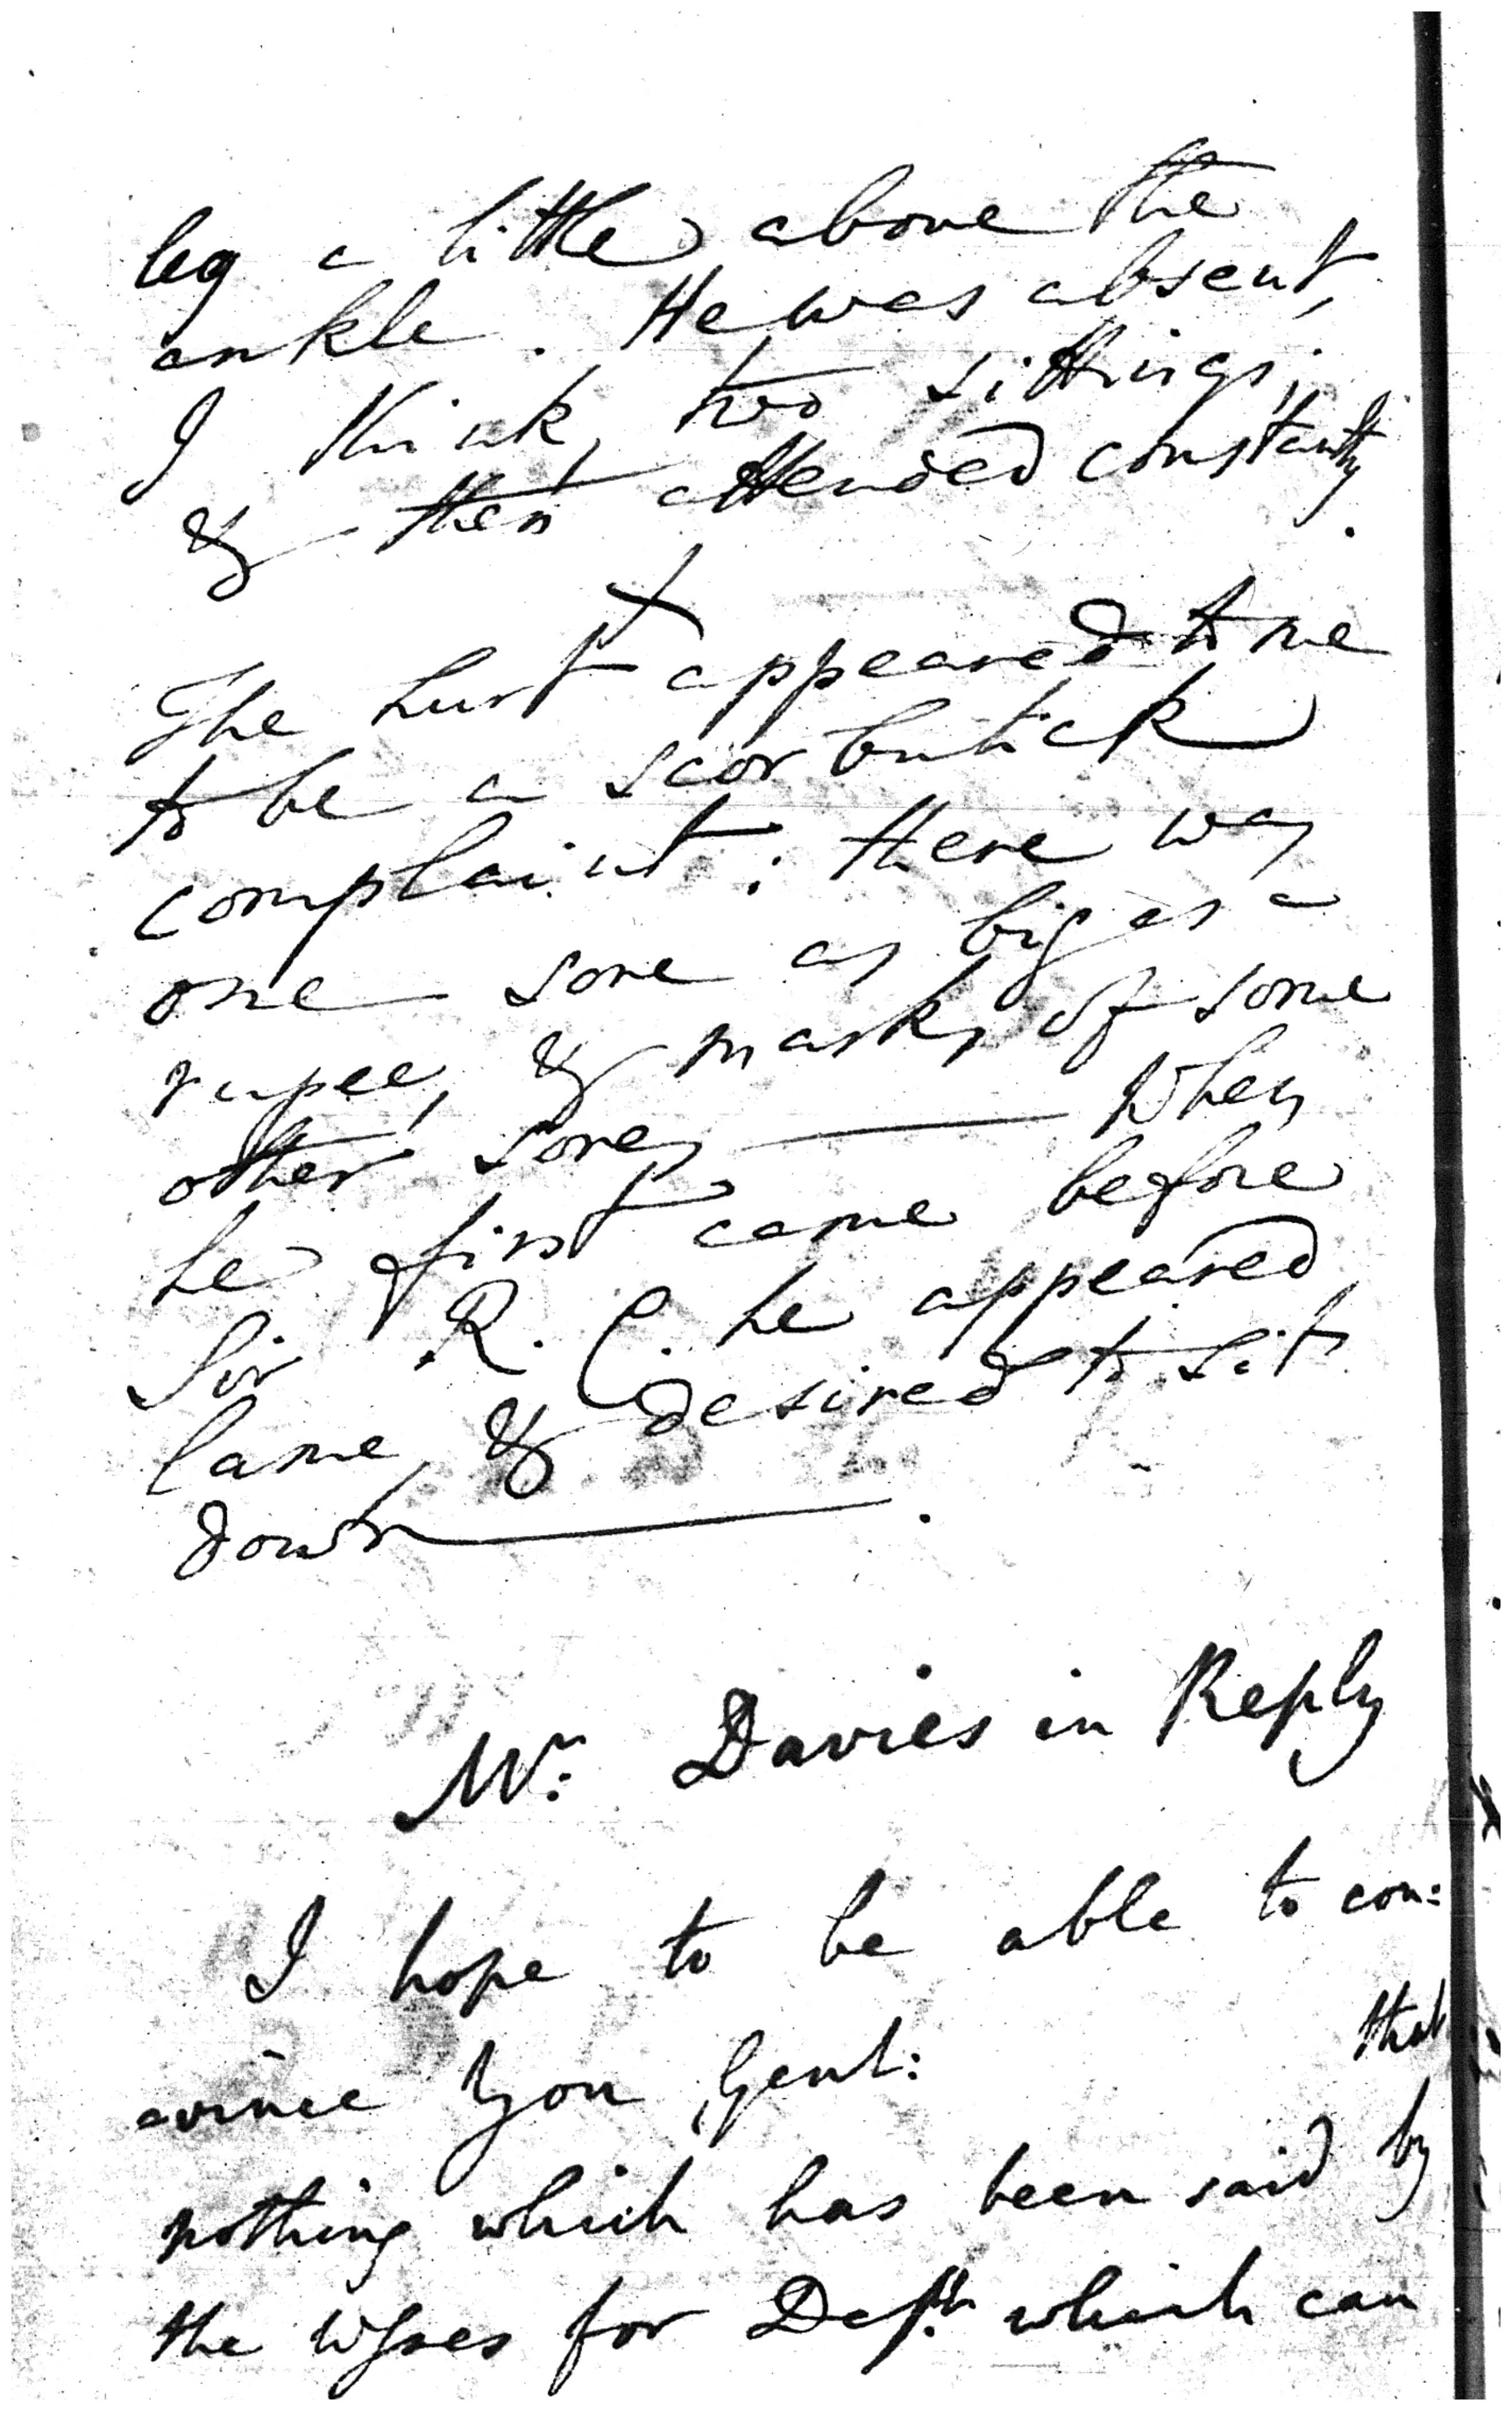 leg a little above the
ankle. He was absent,
I think, two sittings;
& then attended constantly.
The hurt appeared to me
to be a scorbutick
complaint: there was
one sore as big as a
rupee, & marks of some
other sores —— When
he first came before
Sir R. C. he appeared
lame, & desired to sit
down ——.
Mr. Davies in Reply
I hope to be able to con=
=vince You Gent: that
nothing which has been said by
the Wsses for Deft. which can